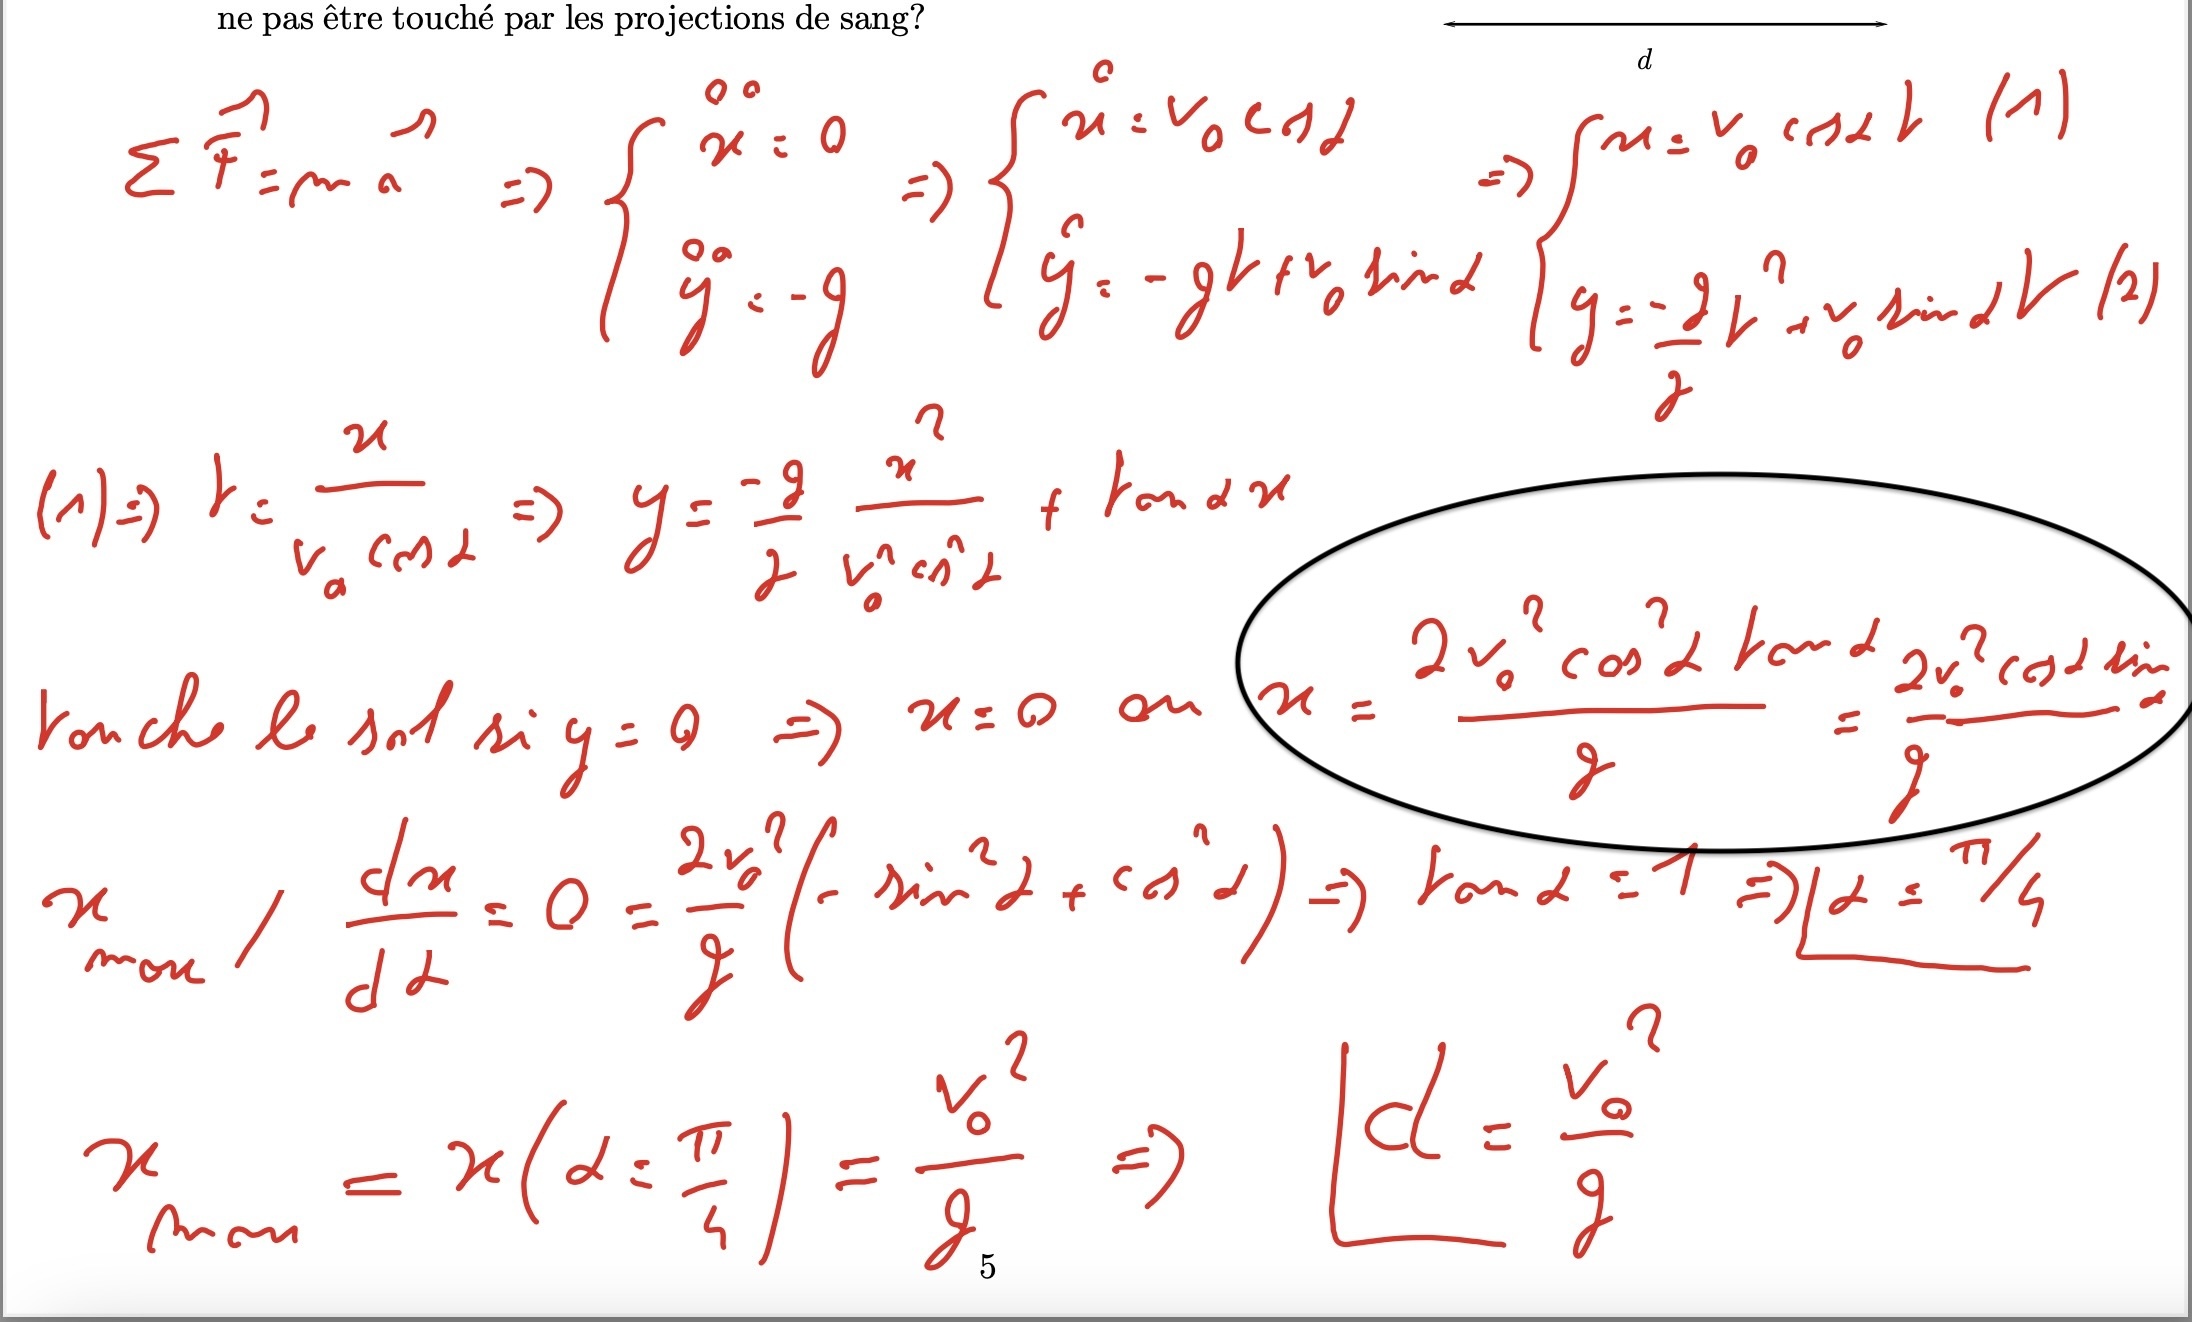 ne pas être touché par les projections de sang?
d
Σ F⃗ = m a⃗ => { ẍ = 0 ; ÿ = -g => { ẋ = v₀ cos α ; ẏ = -gt + v₀ sin α => { x = v₀ cos α t (1) ; y = -g/2 t² + v₀ sin α t (2)
(1) => t = x / (v₀ cos α) => y = -g/2 x² / (v₀² cos² α) + tan α x
touche le sol si y = 0 => x = 0 ou x = 2 v₀² cos² α tan α / g = 2 v₀² cos α sin α / g
x max / dx/dα = 0 = 2 v₀²/g (- sin² α + cos² α) => tan α = 1 => α = π/4
x max = x(α = π/4) = v₀²/g => d = v₀²/g
5